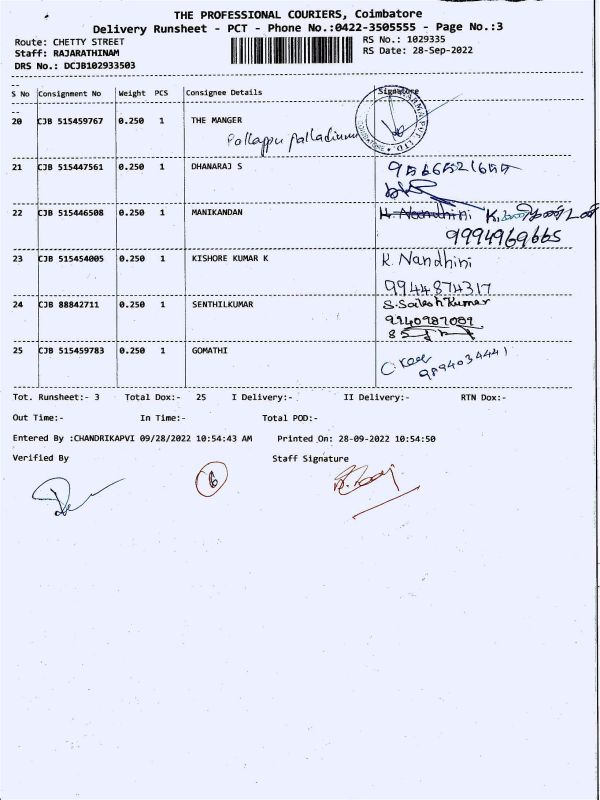 THE PROFESSIONAL COURIERS, Coimbatore
Delivery Runsheet - PCT - Phone No.:0422-3505555 - Page No.:3
Route: CHETTY STREET RS No.: 1029335
Staff: RAJARATHINAM RS Date: 28-Sep-2022
DRS No.: DCJB102933503
S No Consignment No Weight PCS Consignee Details Signature
20 CJB 515459767 0.250 1 THE MANGER
PVT. LTD.
COIMBATORE
21 CJB 515447561 0.250 1 DHANARAJ S
22 CJB 515446508 0.250 1 MANIKANDAN H. Nandhini
9994969665
23 CJB 515454005 0.250 1 KISHORE KUMAR K K. Nandhini
9944874317
24 CJB 88842711 0.250 1 SENTHILKUMAR
25 CJB 515459783 0.250 1 GOMATHI
9894034441
Tot. Runsheet:- 3 Total Dox:- 25 I Delivery:- II Delivery:- RTN Dox:-
Out Time:- In Time:- Total POD:-
Entered By :CHANDRIKAPVI 09/28/2022 10:54:43 AM Printed On: 28-09-2022 10:54:50
Verified By Staff Signature
6